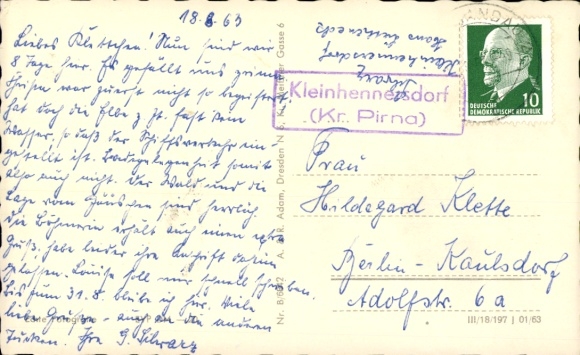 18.8.63
Liebes Klettchen! Nun sind wir
8 Tage hier. Es gefällt uns prima
war zuerst nicht so begeistert,
hat doch die Elbe z. Zt. fast kein
Wasser, so daß der Schiffsverkehr ein-
gestellt ist. Badegelegenheit somit
also auch nicht. Der Wald und die
Lage vom Häuschen sind herrlich.
Die Böhmerin erhält auch einen extra
Gruß, habe leider ihre Anschrift daheim
gelassen. Luise soll mir schnell schreiben.
Bis zum 31.8. bleibe ich hier. Viele
liebe Grüße - auch an die anderen
Ihre G. Schwarz
Schwarz
Kleinhennersdorf
Haus
Kleinhennersdorf
(Kr. Pirna)
DEUTSCHE
DEMOKRATISCHE REPUBLIK
10
Frau
Hildegard Klette
Berlin-Kaulsdorf
Adolfstr. 6a
A. & R. Adam, Dresden N 6, Gasse 6
III/18/197 | 01/63